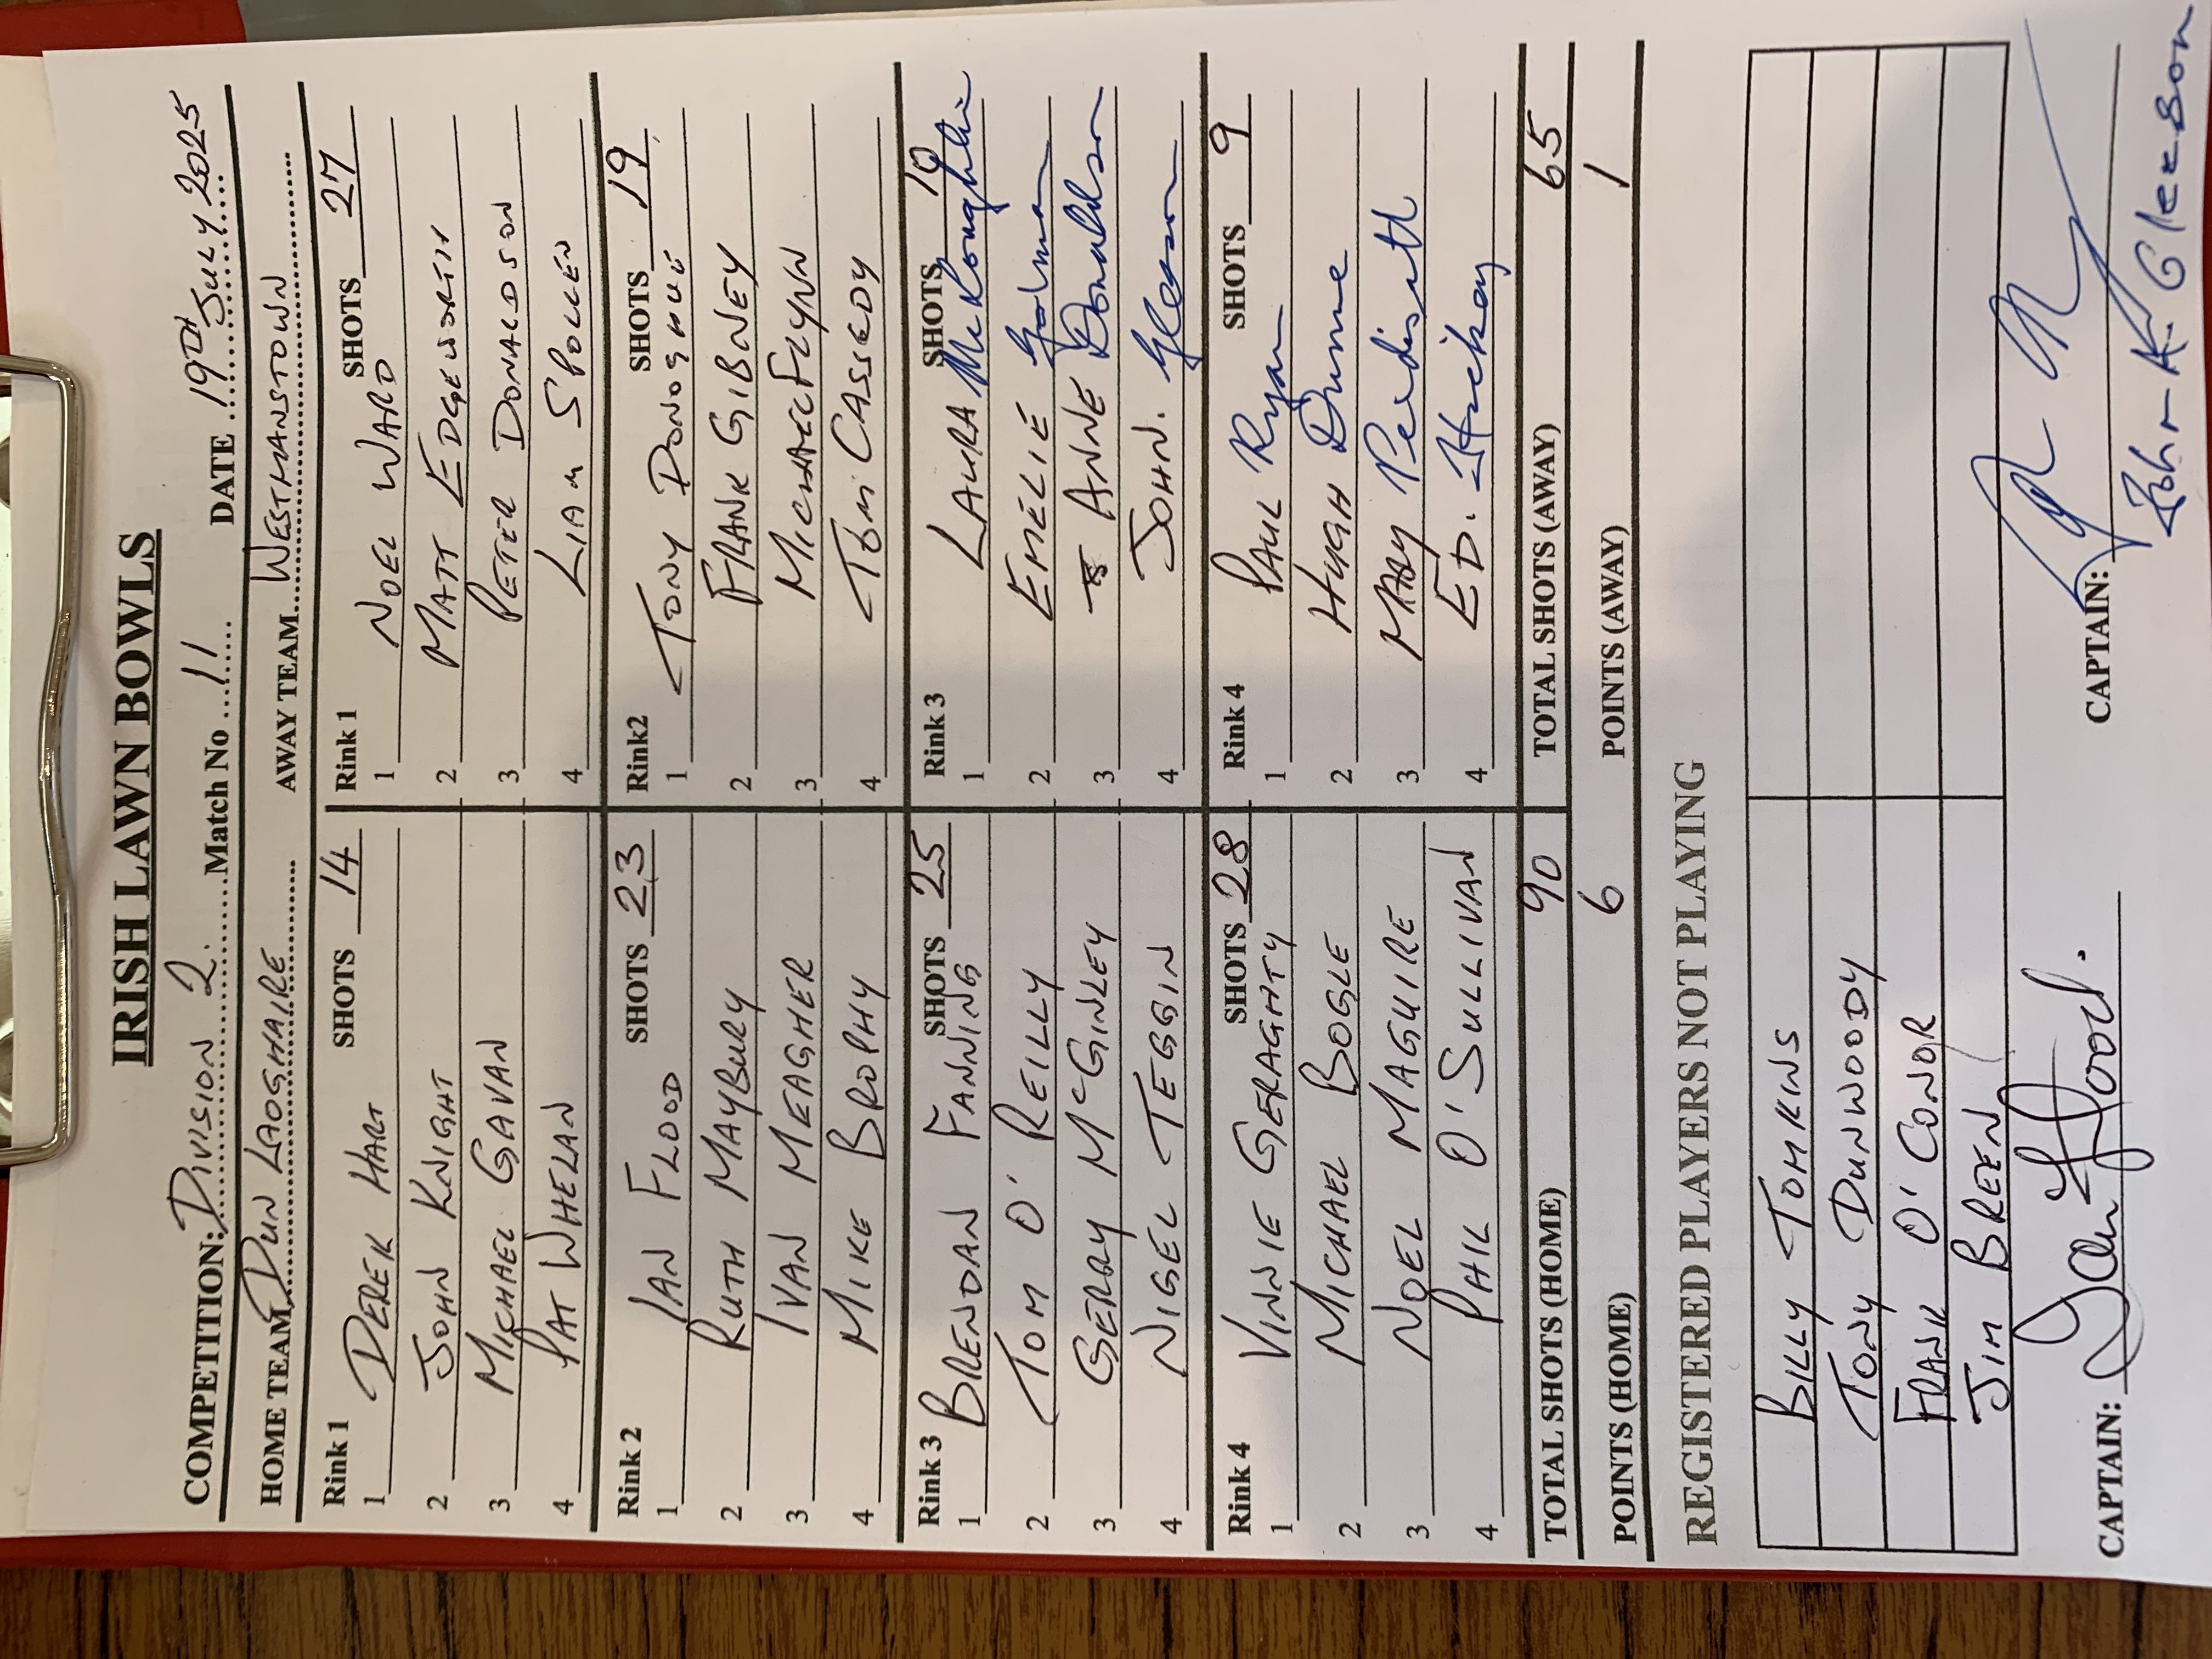 IRISH LAWN BOWLS
COMPETITION: DIVISION 2. Match No 11 DATE 19TH JULY 2025
HOME TEAM DUN LAOGHAIRE AWAY TEAM WESTMANSTOWN
Rink 1 SHOTS 14 Rink 1 SHOTS 27
1 DEREK HART 1 NOEL WARD
2 JOHN KNIGHT 2 MATT EDGEWORTH
3 MICHAEL GAVAN 3 PETER DONALDSON
4 PAT WHELAN 4 LIAM SPOLLEN
Rink 2 SHOTS 23 Rink2 SHOTS 19
1 IAN FLOOD 1 TONY DONOGHUE
2 RUTH MAYBURY 2 FRANK GIBNEY
3 IVAN MEAGHER 3 MICHAEL FLYNN
4 MIKE BROPHY 4 TOM CASSEDY
Rink 3 SHOTS 25 Rink 3 SHOTS 10
1 BRENDAN FANNING 1 LAURA
2 TOM O' REILLY 2 EMELIE
3 GERRY McGINLEY 3 ANNE Donaldson
4 NIGEL TEGGIN 4 JOHN. Gleeson
Rink 4 SHOTS 28 Rink 4 SHOTS 9
1 VINNIE GERAGHTY 1 PAUL Ryan
2 MICHAEL BOGLE 2 HUGH Dunne
3 NOEL MAGUIRE 3 MARY
4 PHIL O'SULLIVAN 4 ED. Hickey
TOTAL SHOTS (HOME) 90 TOTAL SHOTS (AWAY) 65
POINTS (HOME) 6 POINTS (AWAY) 1
REGISTERED PLAYERS NOT PLAYING
BILLY TOMKINS
TONY DUNWOODY
FRANK O'CONOR
JIM BREEN
CAPTAIN: Ian Flood. CAPTAIN:
John K. Gleeson